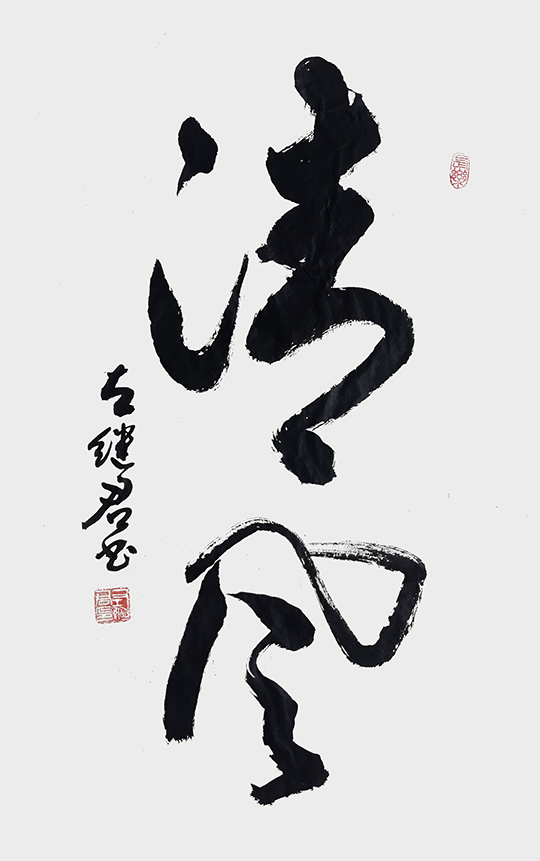 清风
左继君书